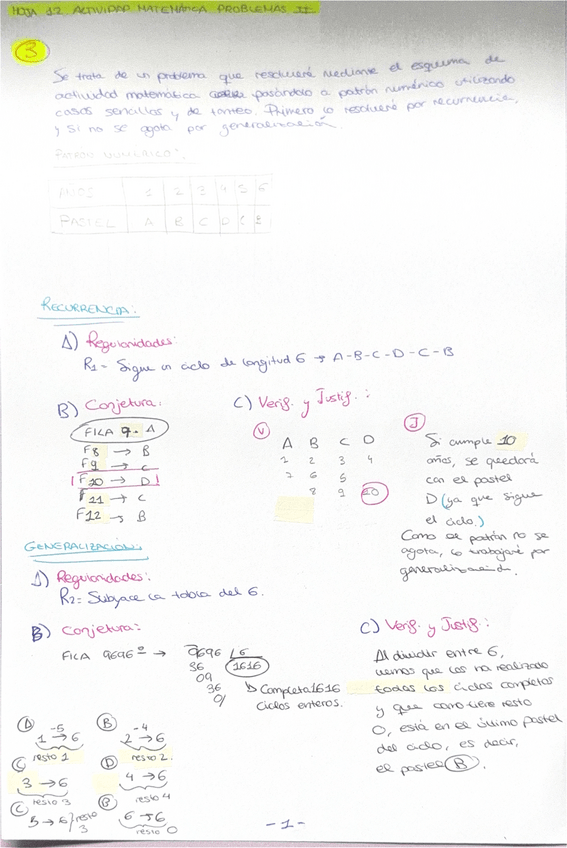 HOJA 12 ACTIVIDAD MATEMÁTICA PROBLEMAS II
3
Se trata de un problema que resolveré mediante el esquema de
actividad matemática pasándolo a patrón numérico utilizando
casos sencillos y de tanteo. Primero lo resolveré por recurrencia,
y si no se agota por generalización.
PATRÓN NUMÉRICO:
AÑOS 1 2 3 4 5 6
PASTEL A B C D C B
RECURRENCIA:
A) Regularidades:
R1 = Sigue un ciclo de longitud 6 → A-B-C-D-C-B
B) Conjetura:
FICA 7 → A
F8 → B
F9 → C
F10 → D
F11 → C
F12 → B
C) Verif. y Justif.:
V
A B C D
1 2 3 4
7 6 5
8 9 10
J
Si cumple 10
años, se quedará
con el pastel
D (ya que sigue
el ciclo.)
Como el patrón no se
agota, lo trabajaré por
generalización.
GENERALIZACIÓN:
A) Regularidades:
R2 = Subyace la tabla del 6.
B) Conjetura:
FICA 9696º → 9696 6
36 1616
09
36
0
Completa 1616
ciclos enteros.
C) Verif. y Justif.:
Al dividir entre 6,
vemos que los ha realizado
todos los ciclos completos
y que como tiene resto
0, está en el último pastel
del ciclo, es decir,
el pastel B.
A -5 B -4
1 → 6 2 → 6
resto 1 resto 2
C D
3 → 6 4 → 6
resto 3 resto 4
C B
5 → 6 resto 3 6 → 6
resto 0
-1-